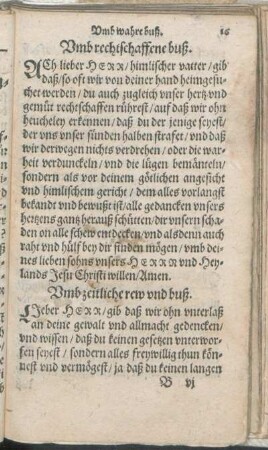 Vmb wahre buß. 16
Vmb rechtschaffene buß.
ACh lieber HERR / himlischer vatter / gib
daß / so oft wir von deiner hand heimgesu-
chet werden / du auch zugleich vnser hertz vnd
gemüt rechtschaffen rührest / auf daß wir ohn
heucheley erkennen / daß du der jenige seyest /
der vns vnser sünden halben strafet / vnd daß
wir derwegen nichts verdrehen / oder die war-
heit verdunckeln / vnd die lügen bemänteln /
sondern als vor deinem götlichen angesicht
vnd himlischem gericht / dem alles vorlangst
bekandt vnd bewußt ist / alle gedancken vnsers
hertzens gantz herauß schütten / dir vnsern scha-
den on alle schew entdecken / vnd alsdenn auch
raht vnd hülf bey dir finden mögen / vmb dei-
nes lieben sohns vnsers HERRN vnd Hey-
lands Jesu Christi willen / Amen.
Vmb zeitliche rew vnd buß.
LJeber HERR / gib daß wir ohn vnterlaß
an deine gewalt vnd allmacht gedencken /
vnd wissen / daß du keinen gesetzen vnterwor-
fen seyest / sondern alles freywillig thun kön-
nest vnd vermögest / ja daß du keinen langen
B vj